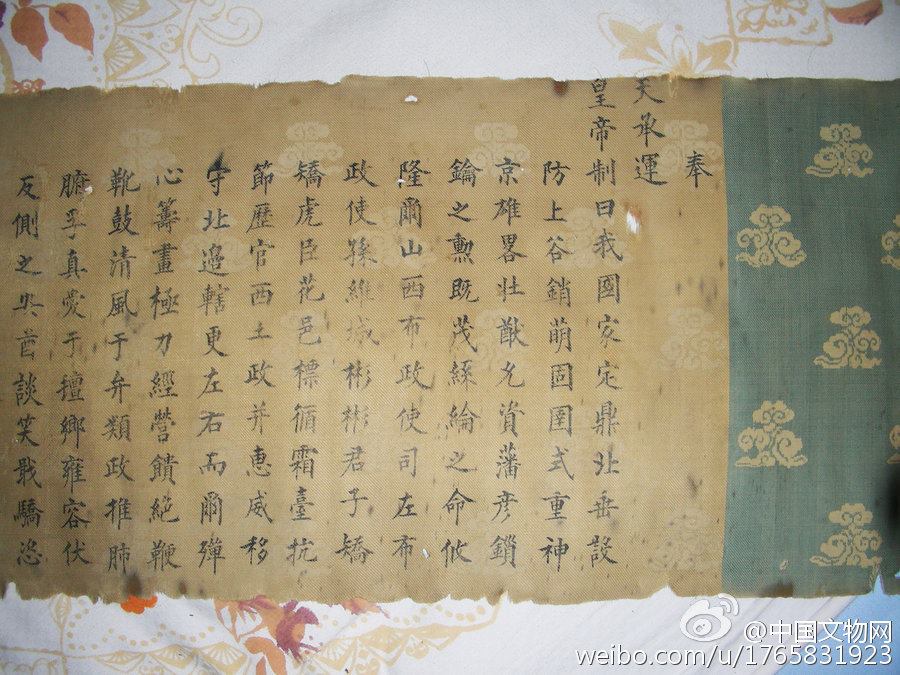 奉
天承運
皇帝制曰我國家定鼎北垂設
防上谷銷萌固圉式重神
京雄畧壯猷允資藩彥鎖
鑰之勲既茂絲綸之命攸
隆爾山西布政使司左布
政使孫維城彬彬君子矯
矯虎臣花邑標循霜臺抗
節歷官西土政并惠威移
守北邉轄更左右而爾殫
心籌畫極力經營饋絕鞭
靴鼓清風于弁類政推肺
腑孚真愛于擅鄉雍容伏
反側之酋談笑戢驕恣
@中国文物网
weibo.com/u/1765831923